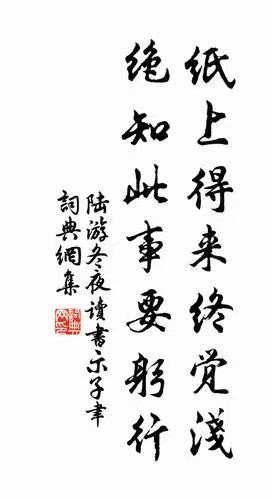 纸上得来终觉浅
绝知此事要躬行
陆游冬夜读书示子聿
詞典網集